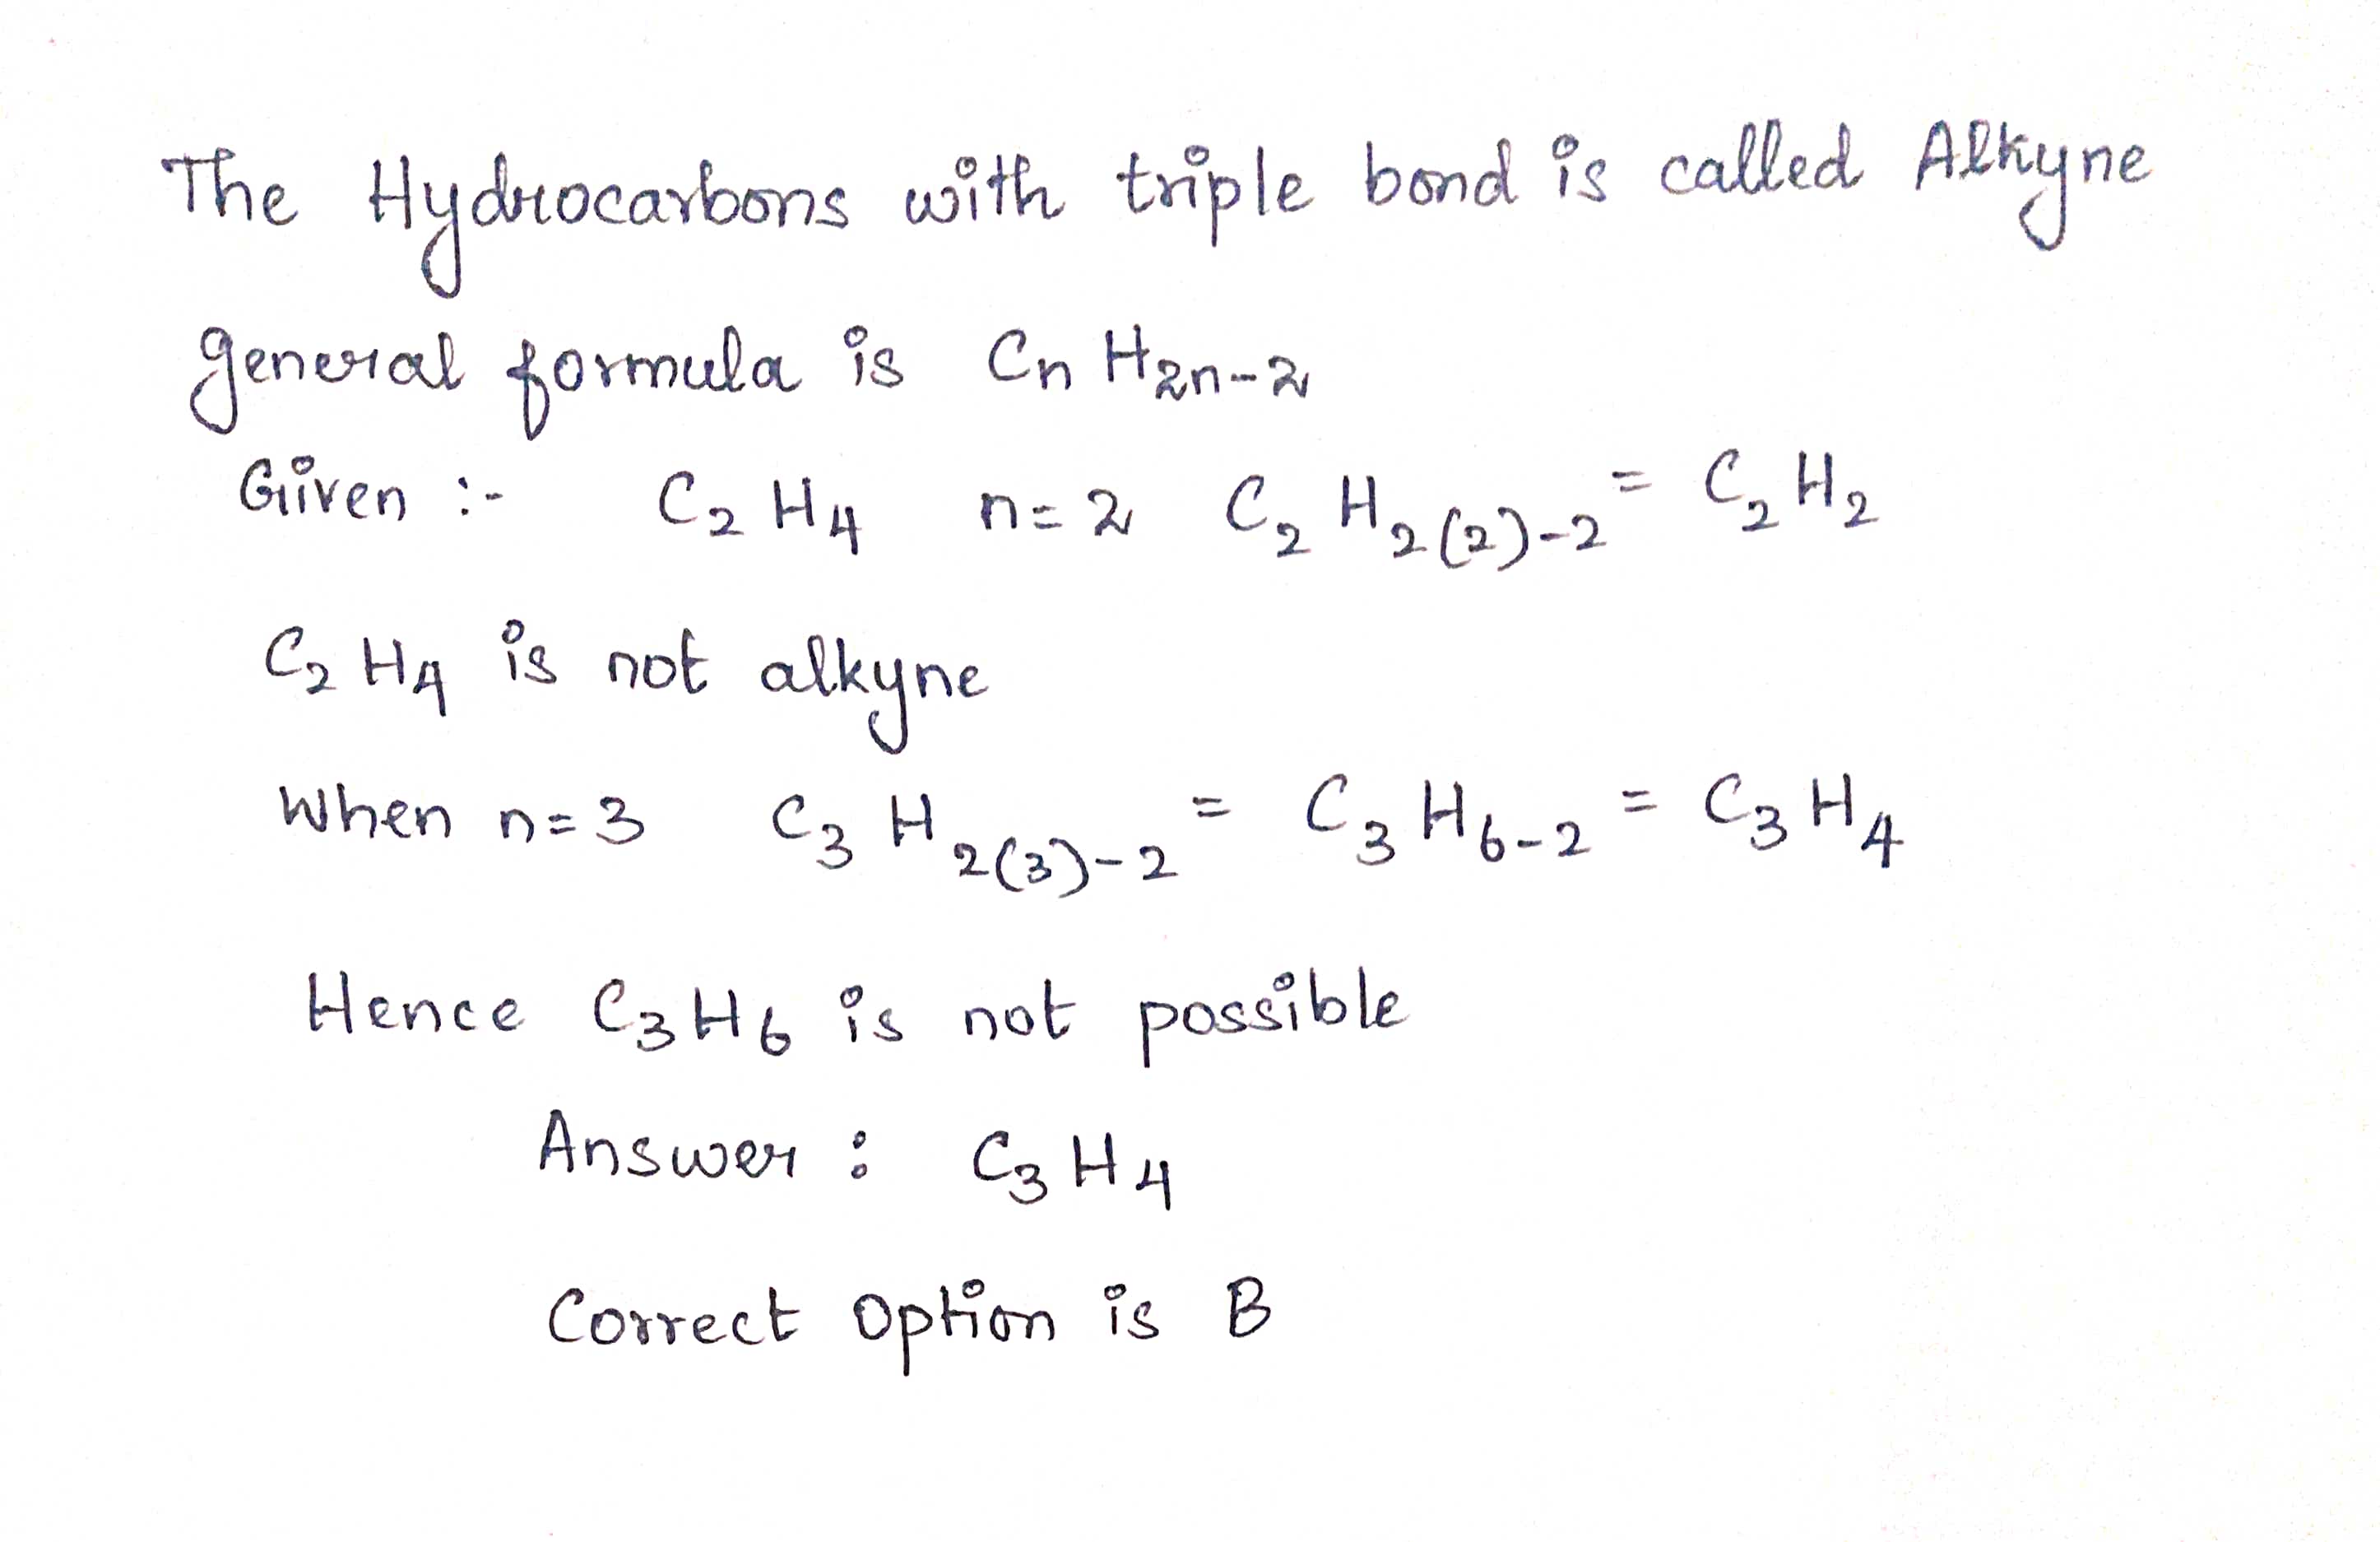 The Hydrocarbons with triple bond is called Alkyne
general formula is CnH2n-2
Given :- C2H4 n=2 C2H2(2)-2 = C2H2
C2H4 is not alkyne
When n=3 C3H2(3)-2 = C3H6-2 = C3H4
Hence C3H6 is not possible
Answer : C3H4
Correct Option is B